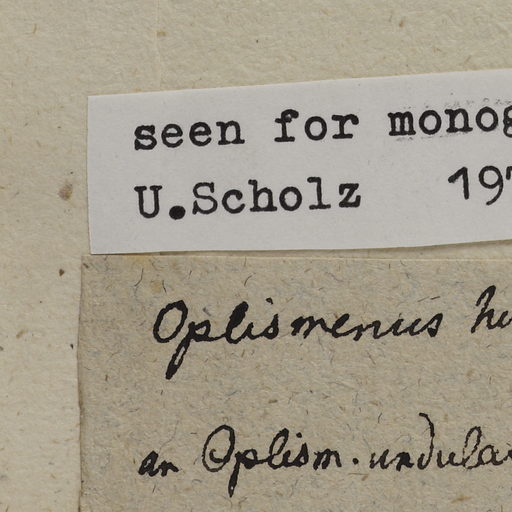 seen for monog
U.Scholz 197
Oplismenus h
an Oplism. undula